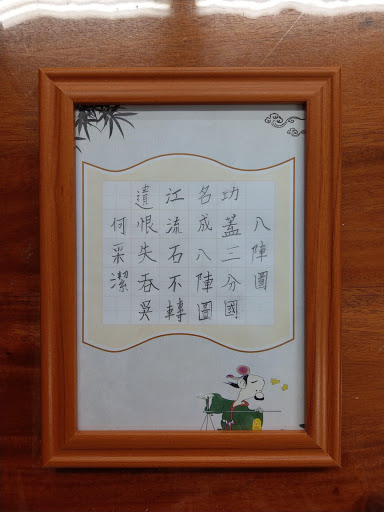 八陣圖
功蓋三分國
名成八陣圖
江流石不轉
遺恨失吞吳
何采潔